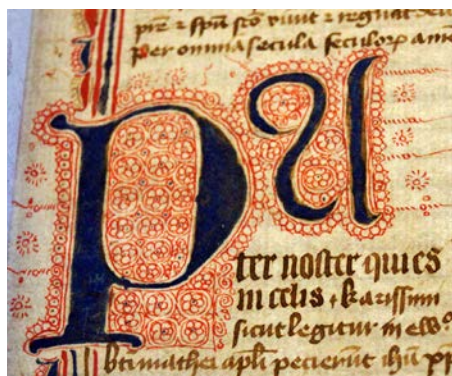 prē ⁊ spū scō viuit ⁊ regnat
per omnia secula seculoꝝ ame
Pa
ter noster qui es
in celis · karissimi
sicut legitur in
bti mathei apli pecierūt ihū